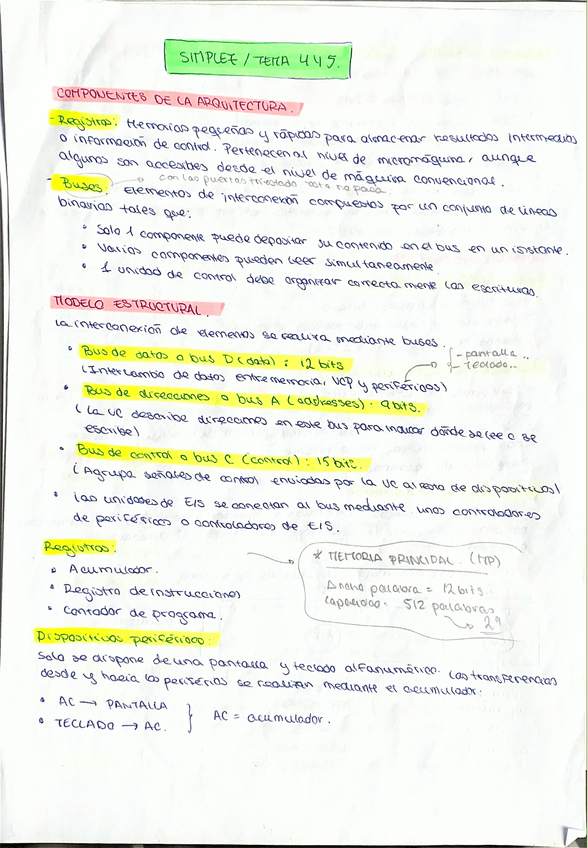 SIMPLEZ / TEMA 4 Y 5.
COMPONENTES DE LA ARQUITECTURA.
- Registros: Memorias pequeñas y rápidas para almacenar resultados intermedios
o información de control. Pertenecen al nivel de micromáquina, aunque
algunos son accesibles desde el nivel de máquina convencional.
con las puertas triestado esto no pasa.
- Buses: Elementos de interconexión compuestos por un conjunto de líneas
binarias tales que:
• Solo 1 componente puede depositar su contenido en el bus en un instante.
• Varios componentes pueden leer simultáneamente.
• 1 unidad de control debe organizar correctamente las escrituras.
MODELO ESTRUCTURAL.
La interconexión de elementos se realiza mediante buses.
• Bus de datos o bus D (data): 12 bits
- pantalla..
- teclado..
(Intercambio de datos entre memoria, UCP y periféricos)
• Bus de direcciones o bus A (addresses): 9 bits.
(La UC describe direcciones en este bus para indicar dónde se lee o se
escribe)
• Bus de control o bus C (control): 15 bits.
(Agrupa señales de control enviadas por la UC al resto de dispositivos)
• Las unidades de E/S se conectan al bus mediante unos controladores
de periféricos o controladores de E/S.
Registros:
• Acumulador.
• Registro de instrucciones
• Contador de programa.
* MEMORIA PRINCIPAL. (MP)
Ancho palabra = 12 bits.
Capacidad: 512 palabras
2⁹
Dispositivos periféricos:
Solo se dispone de una pantalla y teclado alfanumérico. Las transferencias
desde y hacia los periféricos se realizan mediante el acumulador:
• AC → PANTALLA
• TECLADO → AC.
AC = acumulador.